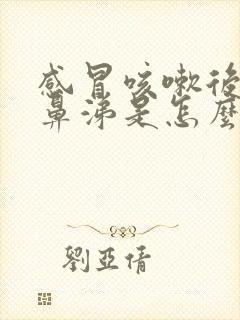 感冒咳嗽後
鼻涕是怎麼
劉亞倩